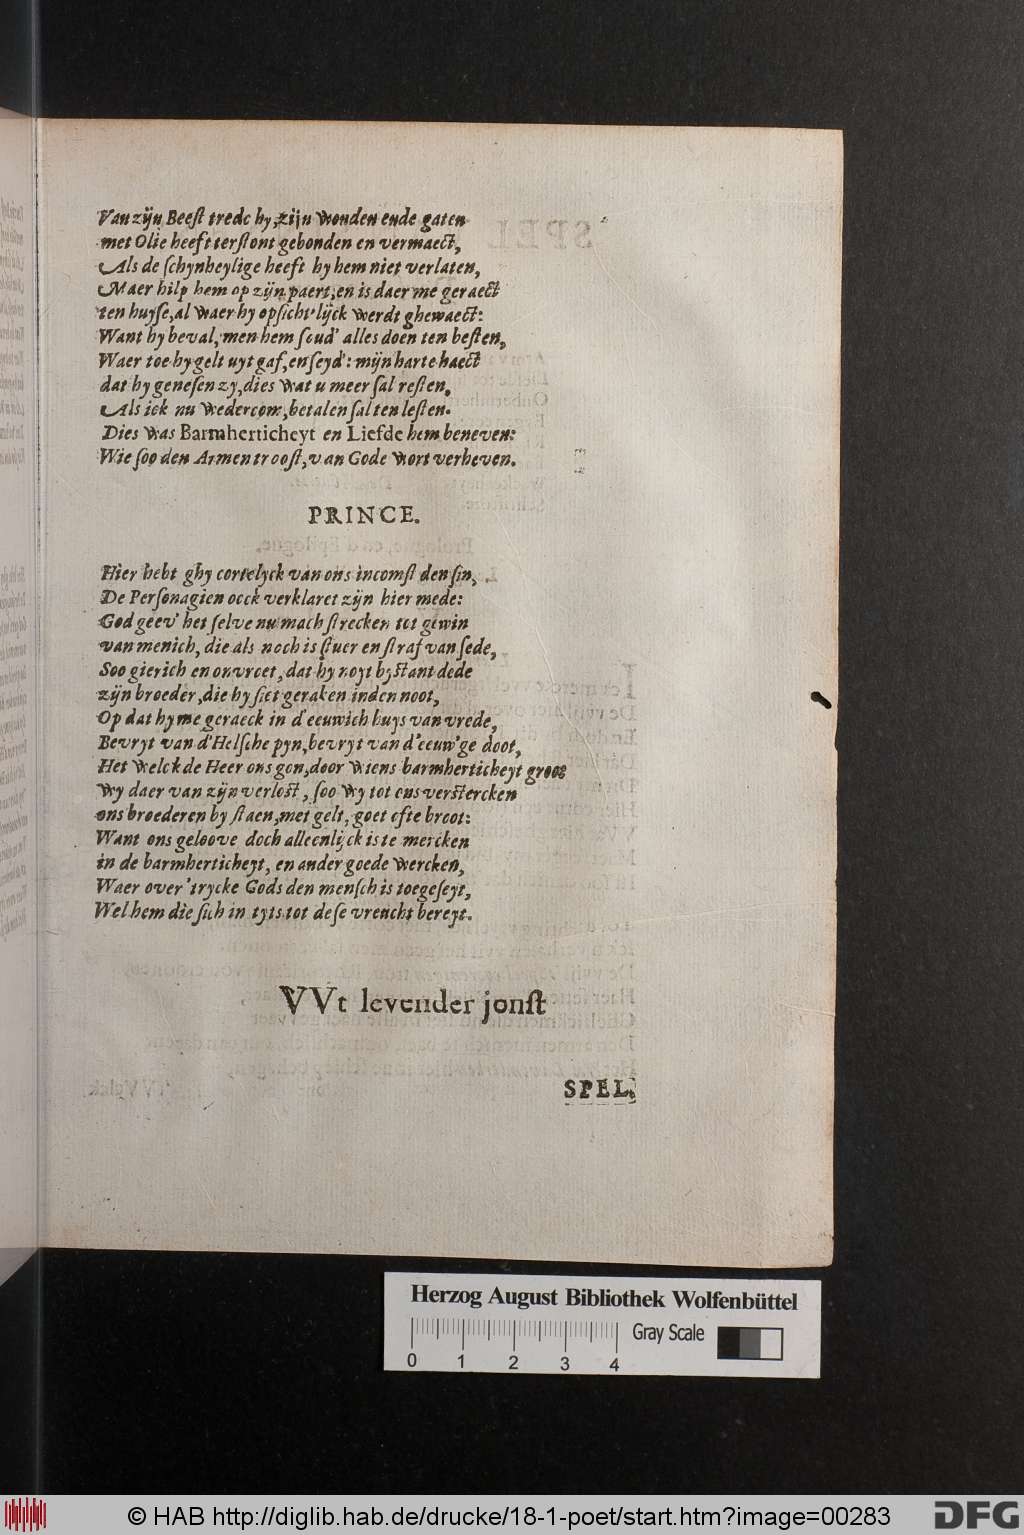 Van zijn Beest trede hy, zijn wonden ende gaten
met Olie heeft terstont gebonden en vermaect,
Als de schynheylige heeft hy hem niet verlaten,
Maer hilp hem op zijn paert, en is daer me geraect
ten huyse, al waer hy opsicht'lijck werdt ghewaect:
Want hy beval, men hem soud' alles doen ten besten,
Waer toe hy gelt uyt gaf, en seyd': mijn harte haect
dat hy genesen zy, dies wat u meer sal resten,
Als ick nu wedercom, betalen sal ten lesten.
Dies was Barmherticheyt en Liefde hem beneven:
Wie soo den Armen troost, van Gode wort verheven.
PRINCE.
Hier hebt ghy cortelyck van ons incomst den sin,
De Personagien oock verklaret zijn hier mede:
God geev' het selve nu mach strecken tot gewin
van menich, die als noch is stuer en straf van sede,
Soo gierich en onvreet, dat hy noyt bystant dede
zijn broeder, die hy siet geraken inden noot,
Op dat hy me geraeck in d'eeuwich huys van vrede,
Bevryt van d'Helsche pyn, bevryt van d'eeuw'ge doot,
Het welck de Heer ons gon, door wiens barmherticheyt groot
wy daer van zijn verlost, soo wy tot ons verstercken
ons broederen by staen, met gelt, goet ofte broot:
Want ons geloove doch alleenlijck is te mercken
in de barmherticheyt, en ander goede wercken,
Waer over 'trycke Gods den mensch is toegeseyt,
Wel hem die sich in tyts tot dese vreucht bereyt.
VVt levender jonst
SPEL.
Herzog August Bibliothek Wolfenbüttel
Gray Scale
0 1 2 3 4
© HAB http://diglib.hab.de/drucke/18-1-poet/start.htm?image=00283
DFG